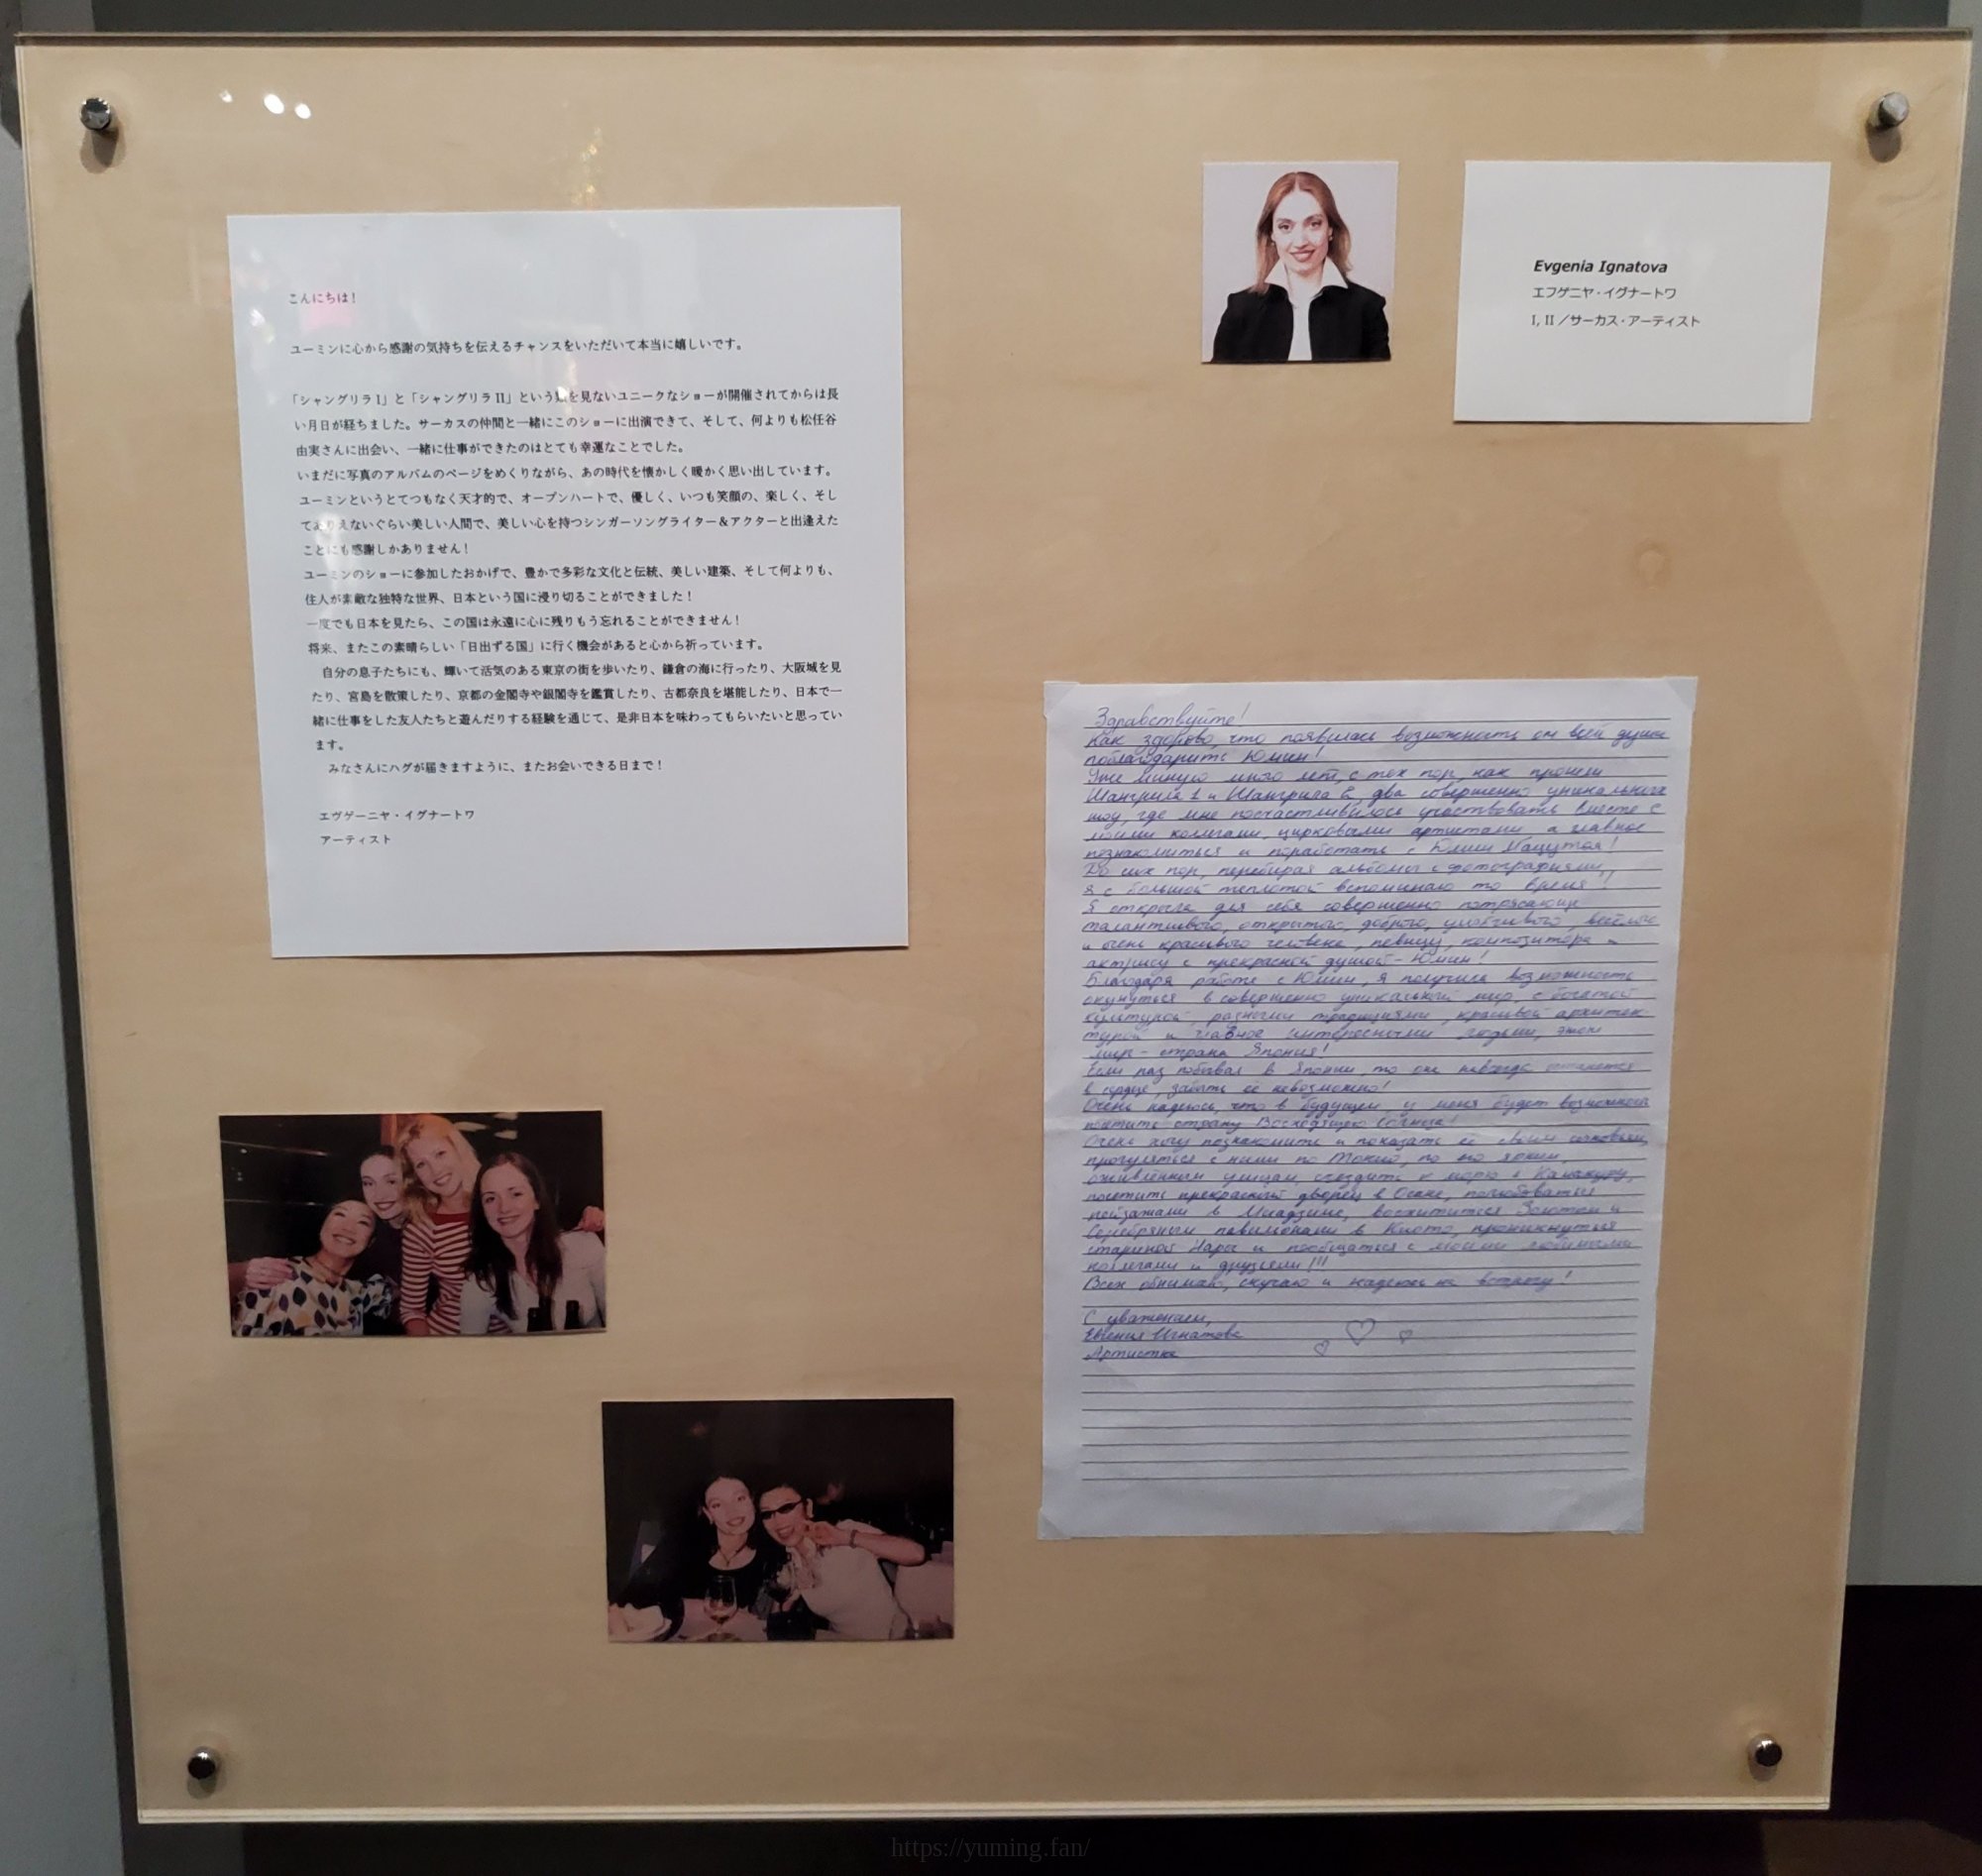 こんにちは！
ユーミンに心から感謝の気持ちを伝えるチャンスをいただいて本当に嬉しいです。
「シャングリラ I」と「シャングリラ II」という類を見ないユニークなショーが開催されてからは長
い月日が経ちました。サーカスの仲間と一緒にこのショーに出演できて、そして、何よりも松任谷
由実さんに出会い、一緒に仕事ができたのはとても幸運なことでした。
いまだに写真のアルバムのページをめくりながら、あの時代を懐かしく暖かく思い出しています。
ユーミンというとてつもなく天才的で、オープンハートで、優しく、いつも笑顔の、楽しく、そし
てありえないぐらい美しい人間で、美しい心を持つシンガーソングライター＆アクターと出逢えた
ことにも感謝しかありません！
ユーミンのショーに参加したおかげで、豊かで多彩な文化と伝統、美しい建築、そして何よりも、
住人が素敵な独特な世界、日本という国に浸り切ることができました！
一度でも日本を見たら、この国は永遠に心に残りもう忘れることができません！
将来、またこの素晴らしい「日出ずる国」に行く機会があると心から祈っています。
自分の息子たちにも、輝いて活気のある東京の街を歩いたり、鎌倉の海に行ったり、大阪城を見
たり、宮島を散策したり、京都の金閣寺や銀閣寺を鑑賞したり、古都奈良を堪能したり、日本で一
緒に仕事をした友人たちと遊んだりする経験を通じて、是非日本を味わってもらいたいと思ってい
ます。
みなさんにハグが届きますように、またお会いできる日まで！
エヴゲーニヤ・イグナートワ
アーティスト
Evgenia Ignatova
エフゲニヤ・イグナートワ
I, II／サーカス・アーティスト
Здравствуйте!
Как здорово, что появилась возможность от всей души
поблагодарить Юмин!
Уже минуло много лет, с тех пор, как прошли
Шангрила 1 и Шангрила 2, два совершенно уникальных
шоу, где мне посчастливилось участвовать вместе с
моими коллегами, цирковыми артистами, а главное
познакомиться и поработать с Юмин Мацутоя!
До сих пор, перебирая альбомы с фотографиями,
я с большой теплотой вспоминаю то время!
Я открыла для себя совершенно потрясающе
талантливого, открытого, доброго, улыбчивого, весёлого
и очень красивого человека, певицу, композитора и
актрису с прекрасной душой - Юмин!
Благодаря работе с Юмин, я получила возможность
окунуться в совершенно уникальный мир, с богатой
культурой, разными традициями, красивой архитек-
турой и главное интересными людьми, этот
мир - страна Япония!
Если раз побывал в Японии, то она навсегда останется
в сердце, забыть её невозможно!
Очень надеюсь, что в будущем у меня будет возможность
посетить страну Восходящего Солнца!
Очень хочу познакомить и показать её своим сыновьям,
прогуляться с ними по Токио, по его ярким,
оживлённым улицам, съездить к морю в Камакуру,
посетить прекрасный дворец в Осаке, полюбоваться
пейзажами в Миядзиме, восхититься Золотым и
Серебряным павильонами в Киото, проникнуться
стариной Нары и пообщаться с моими любимыми
коллегами и друзьями!!!
Всех обнимаю, скучаю и надеюсь на встречу!
С уважением,
Евгения Игнатова
Артистка
https://yuming.fan/